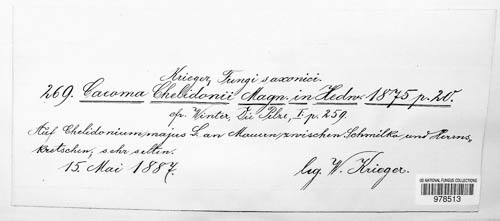 Krieger, Fungi saxonici.
269. Caeoma Chelidonii Magn. in Hedw. 1875 p. 20.
cfr. Winter, Die Pilze, I. p. 259.
Auf Chelidonium majus L. an Mauern zwischen Schmilka und Herrns-
kretschen, sehr selten.
15. Mai 1887. leg. W. Krieger.
US NATIONAL FUNGUS COLLECTIONS
978513